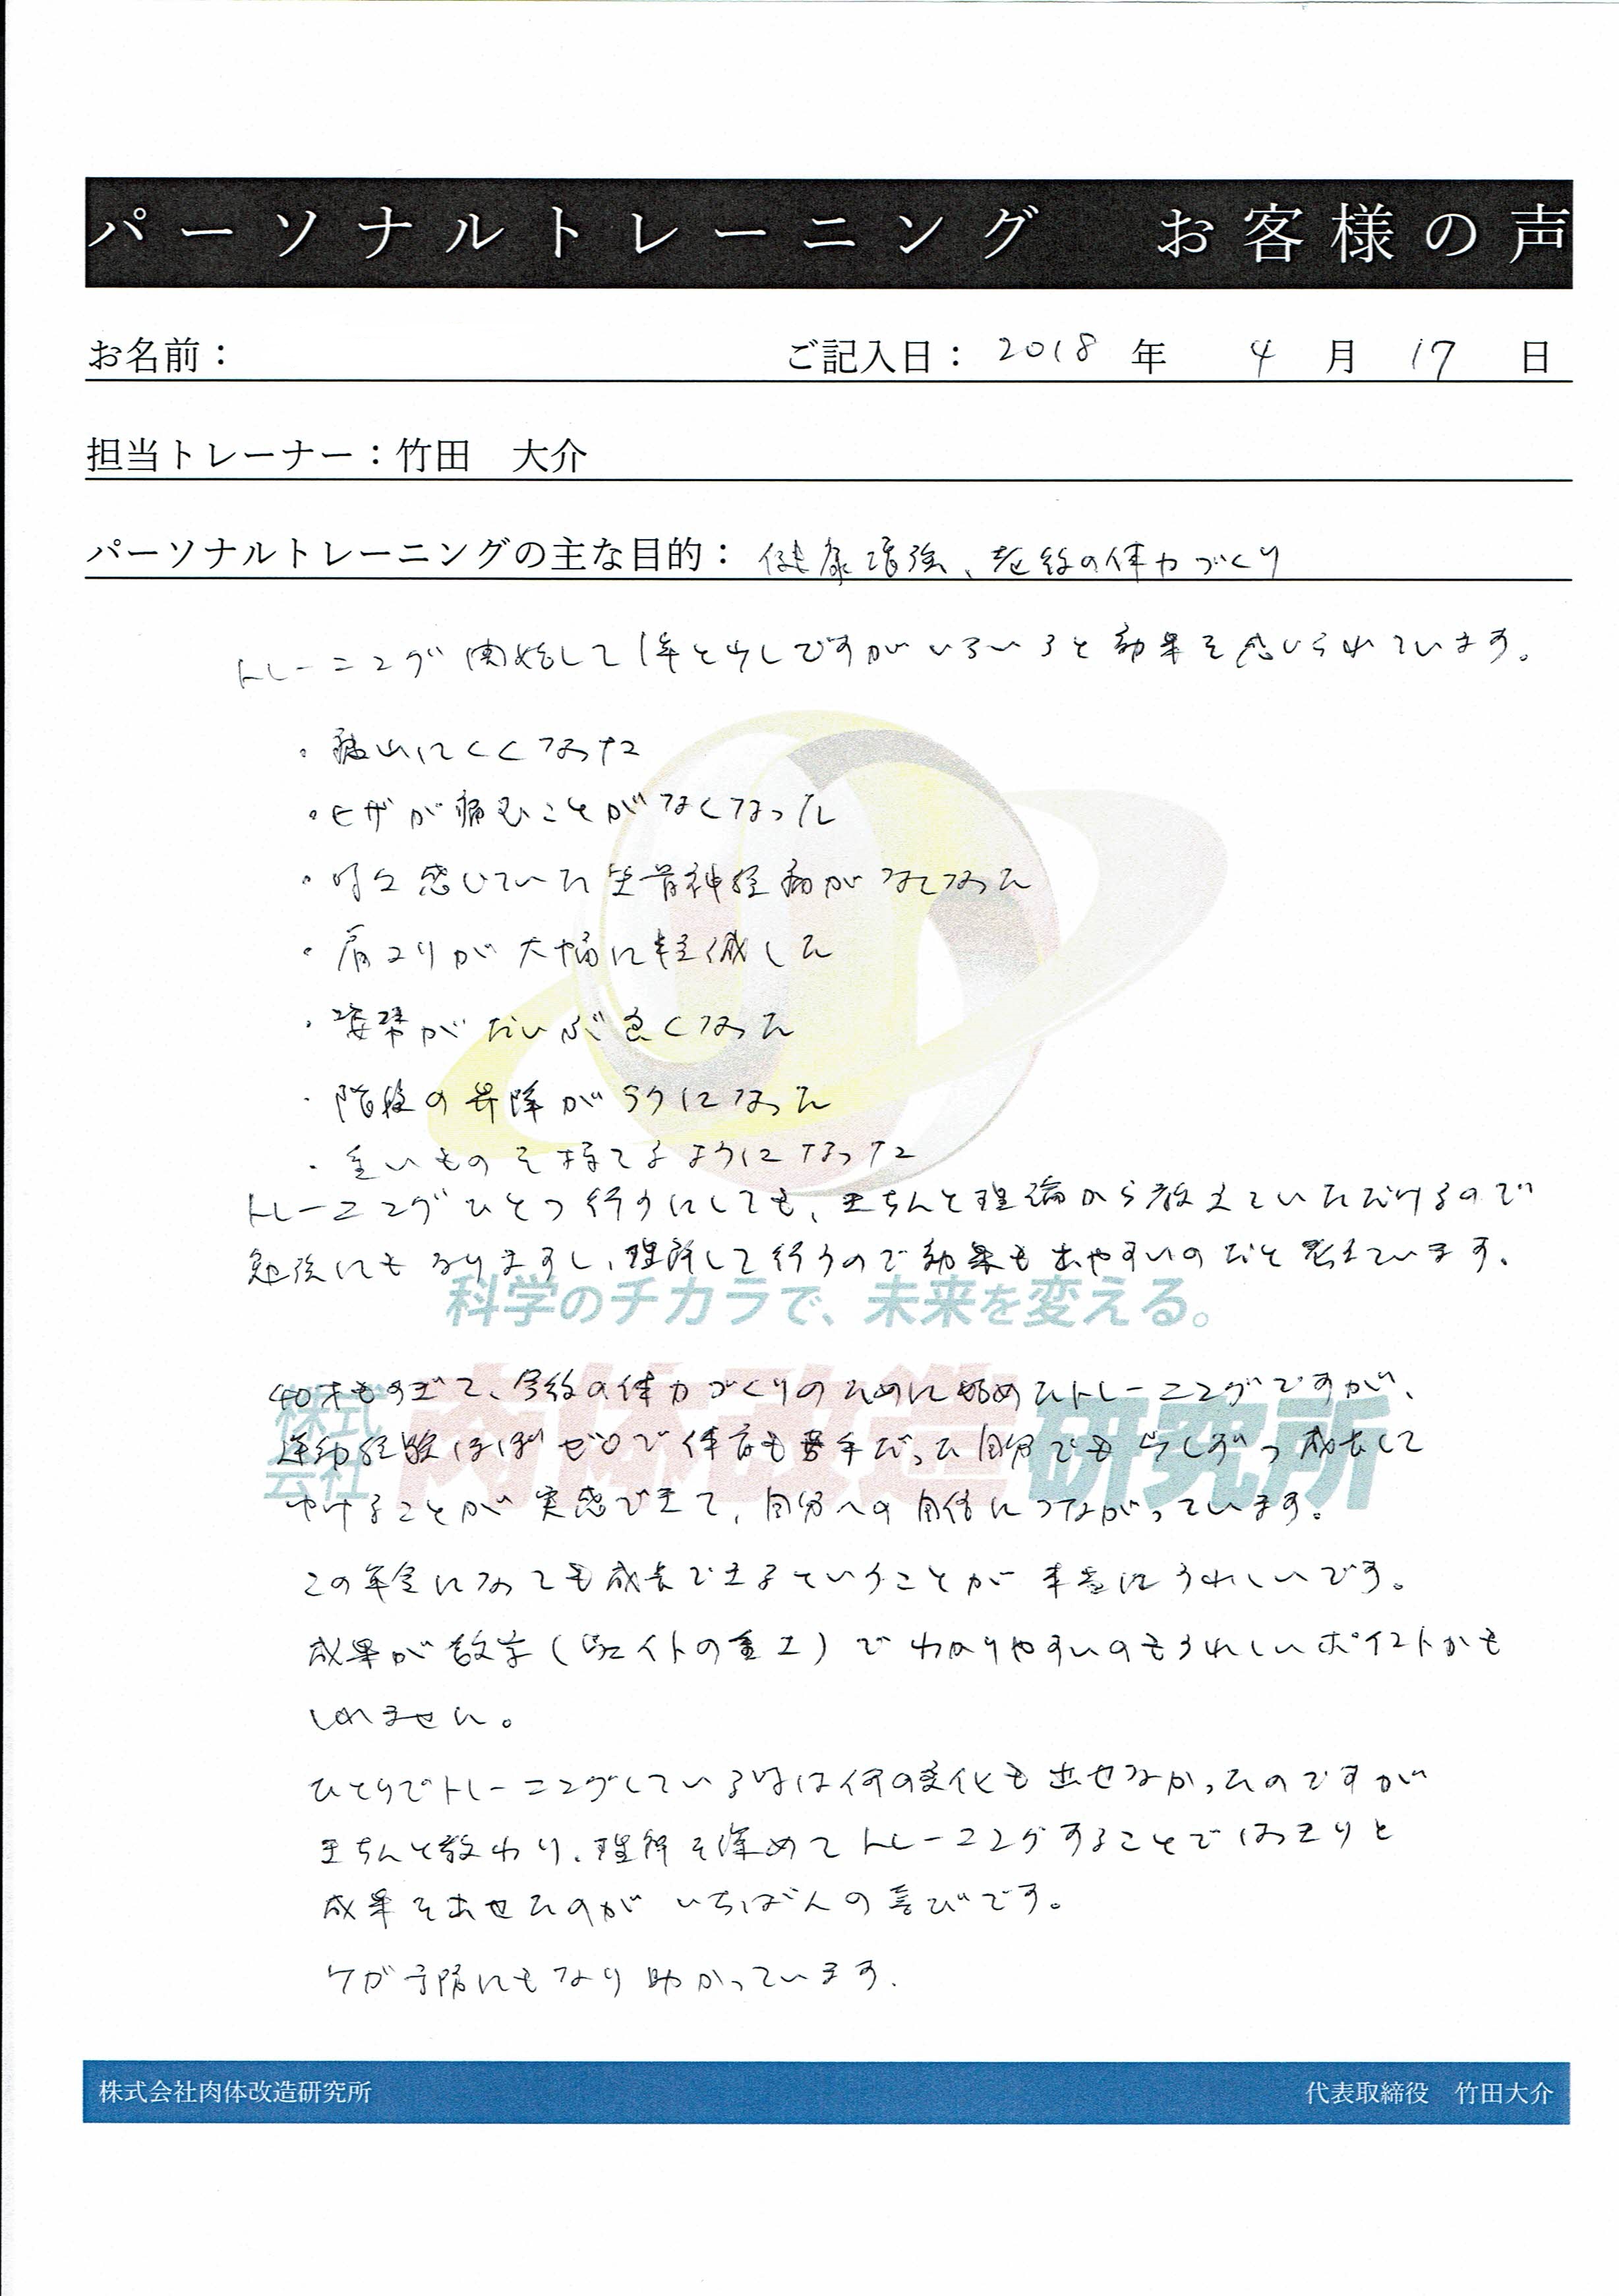 パーソナルトレーニング　お客様の声
お名前：　ご記入日：2018年　4月　17　日
担当トレーナー：竹田　大介
パーソナルトレーニングの主な目的：健康増強、老後の体力づくり
トレーニング開始して1年と少しですがいろいろと効果を感じられています。
・疲れにくくなった
・ヒザが痛むことがなくなった
・時々感じていた坐骨神経痛がなくなった
・肩コリが大幅に軽減した
・姿勢がだいぶ良くなった
・階段の昇降がラクになった
・重いものを持てるようになった
トレーニングひとつ行うにしても、きちんと理論から教えていただけるので
勉強にもなりますし、理解して行うので効果も出やすいのだと考えています。
科学のチカラで、未来を変える。
株式会社 肉体改造研究所
40才もすぎて、今後の体力づくりのために始めたトレーニングですが、
運動経験ほぼゼロで体育も苦手だった自分でも少しずつ成長して
ゆけることが実感できて、自分への自信につながっています。
この年令になっても成長できるということが本当にうれしいです。
成果が数字(ウェイトの重さ)でわかりやすいのもうれしいポイントかも
しれません。
ひとりでトレーニングしている時は何の変化も出せなかったのですが
きちんと教わり、理解を深めてトレーニングすることではっきりと
成果を出せたのがいちばんの喜びです。
ケガ予防にもなり助かっています。
株式会社肉体改造研究所　代表取締役　竹田大介